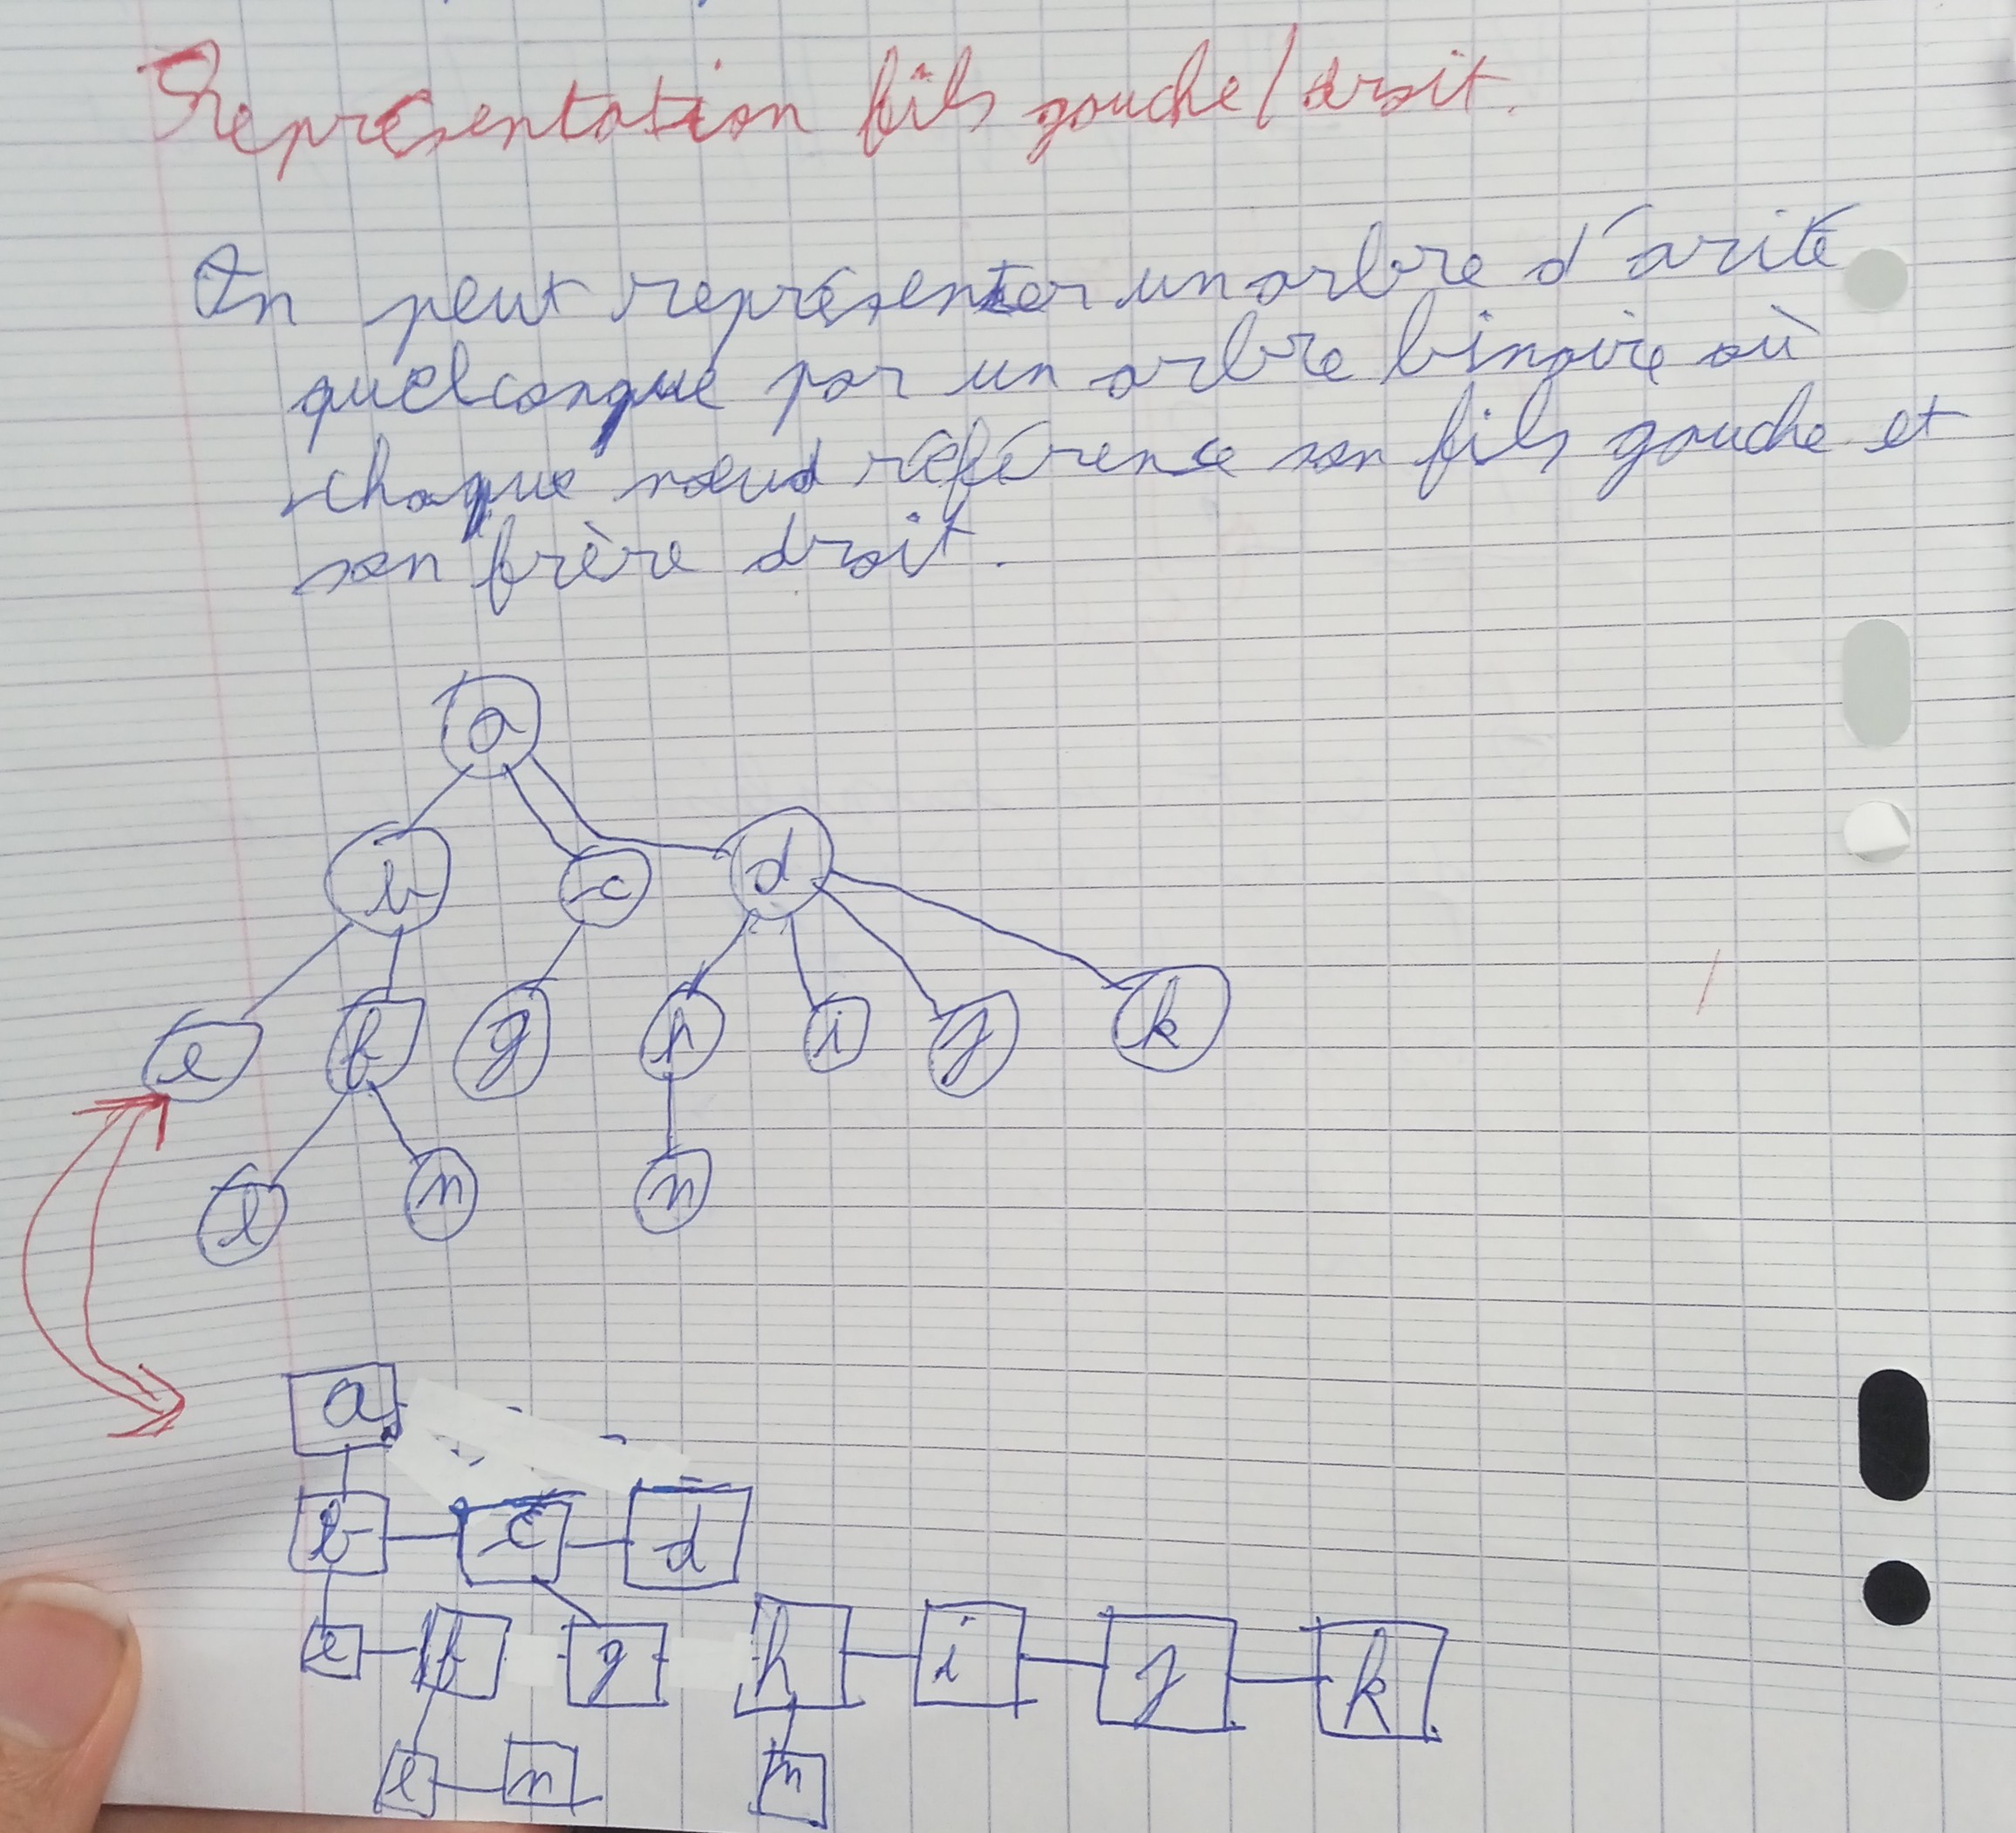 Représentation fils gauche/droit.
On peut représenter un arbre d'arité
quelconque par un arbre binaire où
chaque nœud référence son fils gauche et
son frère droit.
a
b c d
e f g h i j k
l n n
a
b c d
e f g h i j k
l n n